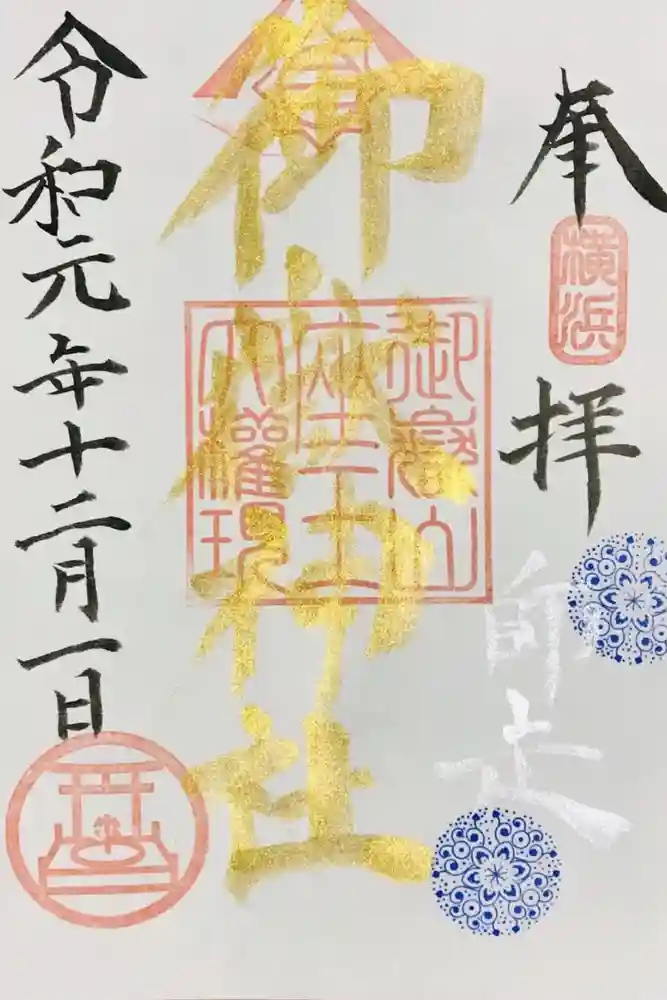 奉拝
横浜
師走
御嶽神社
御嶽山
座王
大権現
令和元年十二月一日